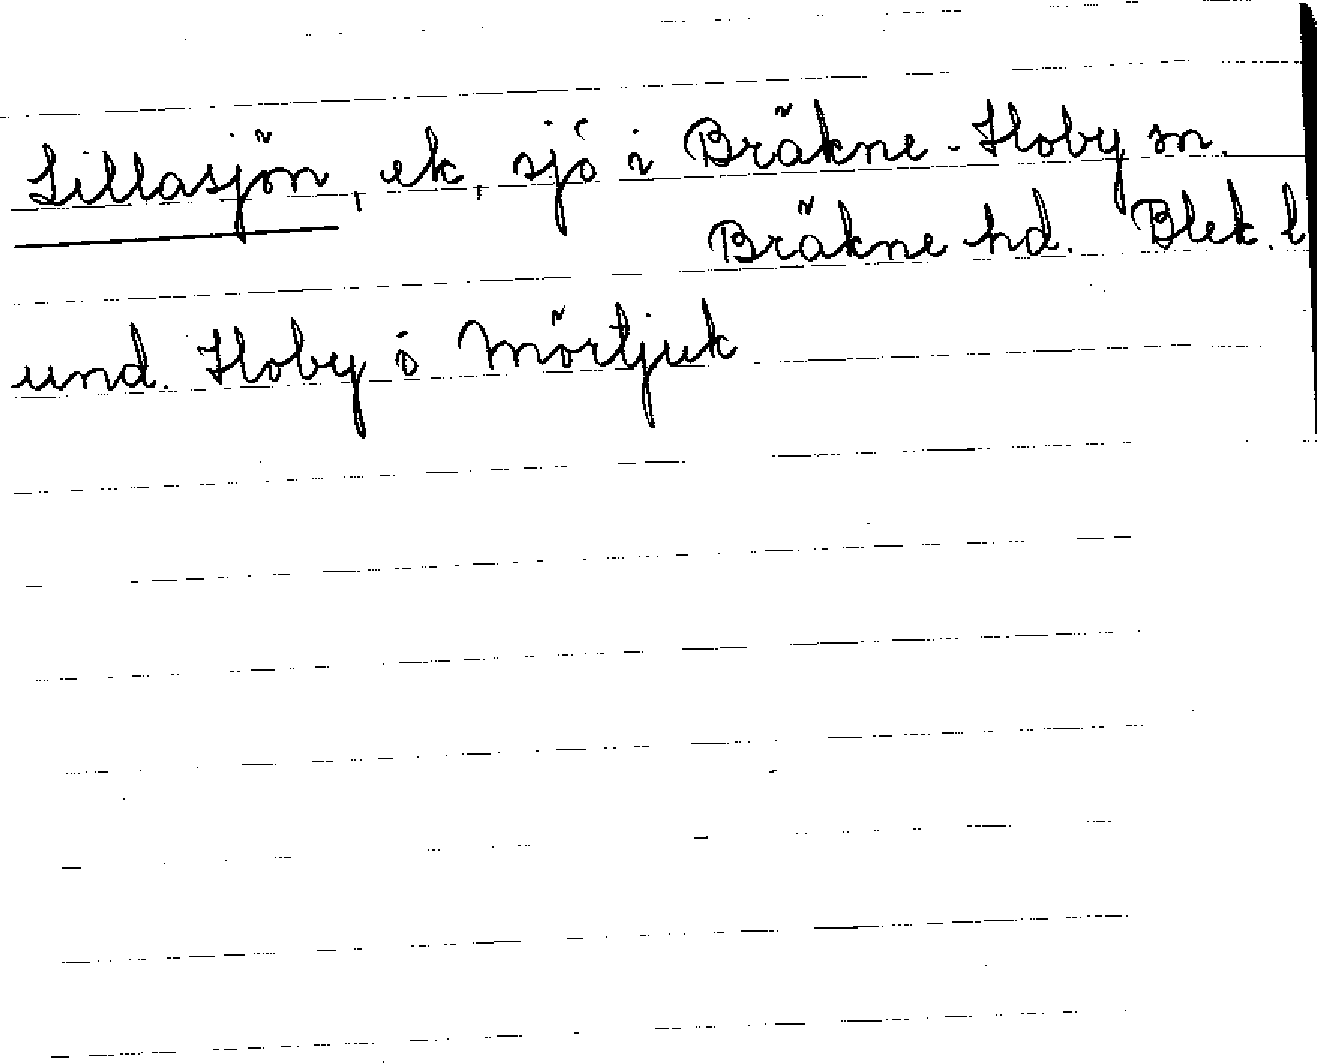 Lillasjön, ek, sjö i Bräkne-Hoby sn.
Bräkne hd. Blek. l
und. Hoby ö Mörtjuk